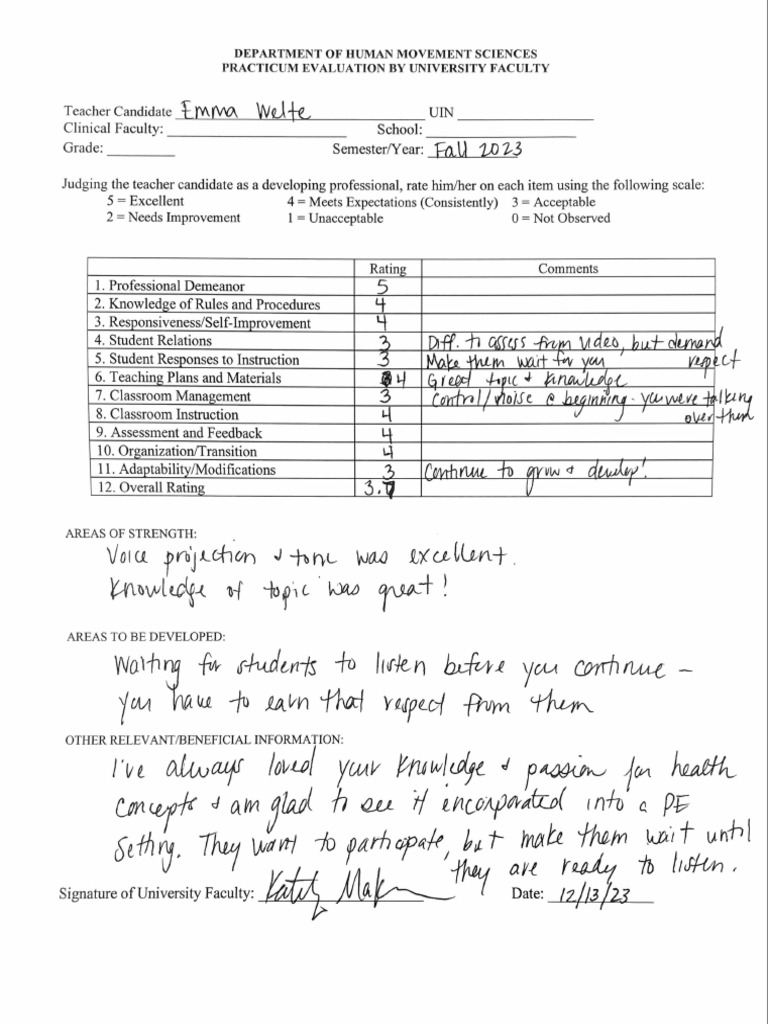 DEPARTMENT OF HUMAN MOVEMENT SCIENCES
PRACTICUM EVALUATION BY UNIVERSITY FACULTY
Teacher Candidate Emma Welte UIN
Clinical Faculty: School:
Grade: Semester/Year: Fall 2023
Judging the teacher candidate as a developing professional, rate him/her on each item using the following scale:
5 = Excellent 4 = Meets Expectations (Consistently) 3 = Acceptable
2 = Needs Improvement 1 = Unacceptable 0 = Not Observed
Rating Comments
1. Professional Demeanor 5
2. Knowledge of Rules and Procedures 4
3. Responsiveness/Self-Improvement 4
4. Student Relations 3 Diff. to assess from video, but demand respect
5. Student Responses to Instruction 3 Make them wait for you
6. Teaching Plans and Materials 4 Great topic & knowledge
7. Classroom Management 3 Control/noise @ beginning - you were talking over them
8. Classroom Instruction 4
9. Assessment and Feedback 4
10. Organization/Transition 4
11. Adaptability/Modifications 3 Continue to grow & develop!
12. Overall Rating 3.7
AREAS OF STRENGTH:
Voice projection & tone was excellent.
Knowledge of topic was great!
AREAS TO BE DEVELOPED:
Waiting for students to listen before you continue –
you have to earn that respect from them
OTHER RELEVANT/BENEFICIAL INFORMATION:
I've always loved your knowledge & passion for health
concepts & am glad to see it incorporated into a PE
setting. They want to participate, but make them wait until
they are ready to listen.
Signature of University Faculty: Date: 12/13/23